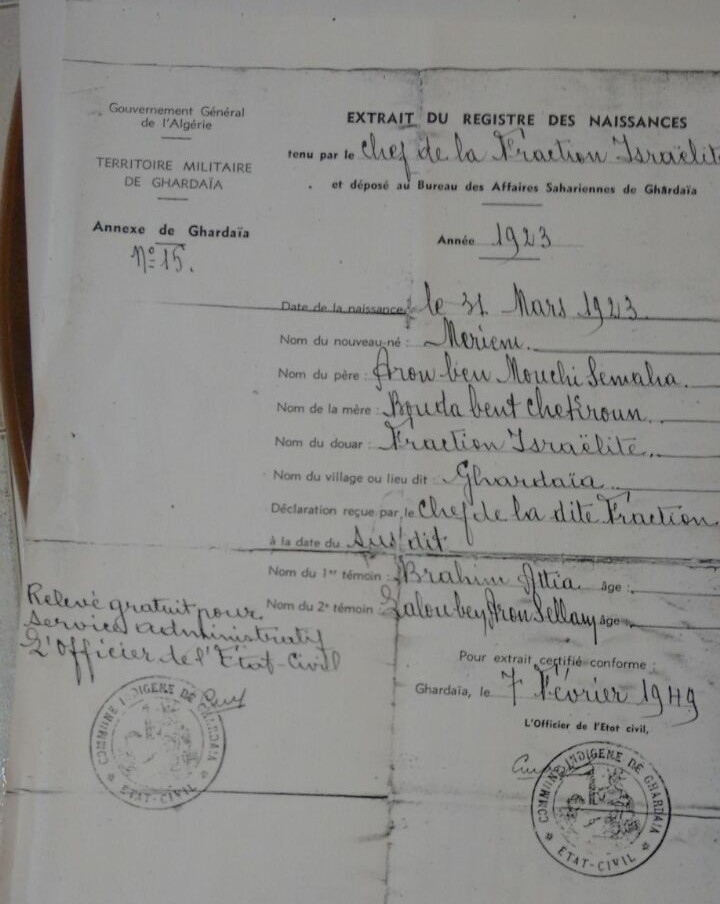 Gouvernement Général
de l'Algérie
TERRITOIRE MILITAIRE
DE GHARDAÏA
Annexe de Ghardaïa
Nº 15.
EXTRAIT DU REGISTRE DES NAISSANCES
tenu par le Chef de la Fraction Israëlite
et déposé au Bureau des Affaires Sahariennes de Ghardaïa
Année 1923
Date de la naissance : le 31 Mars 1923
Nom du nouveau-né : Meriem
Nom du père : Aron ben Mouchi Semaha.
Nom de la mère : Bouda bent Chekroun
Nom du douar : Fraction Israëlite
Nom du village ou lieu dit : Ghardaïa
Déclaration reçue par le Chef de la dite Fraction
à la date du Sus dit
Nom du 1er témoin : Brahim Attia âge :
Nom du 2e témoin : Aron Sellam âge
Relevé gratuit pour
Service administratif
L'Officier de l'Etat-Civil
Pour extrait certifié conforme :
Ghardaïa, le 7 Février 1949
L'Officier de l'Etat civil,
COMMUNE INDIGENE DE GHARDAIA
ETAT-CIVIL
COMMUNE INDIGENE DE GHARDAIA
ETAT-CIVIL